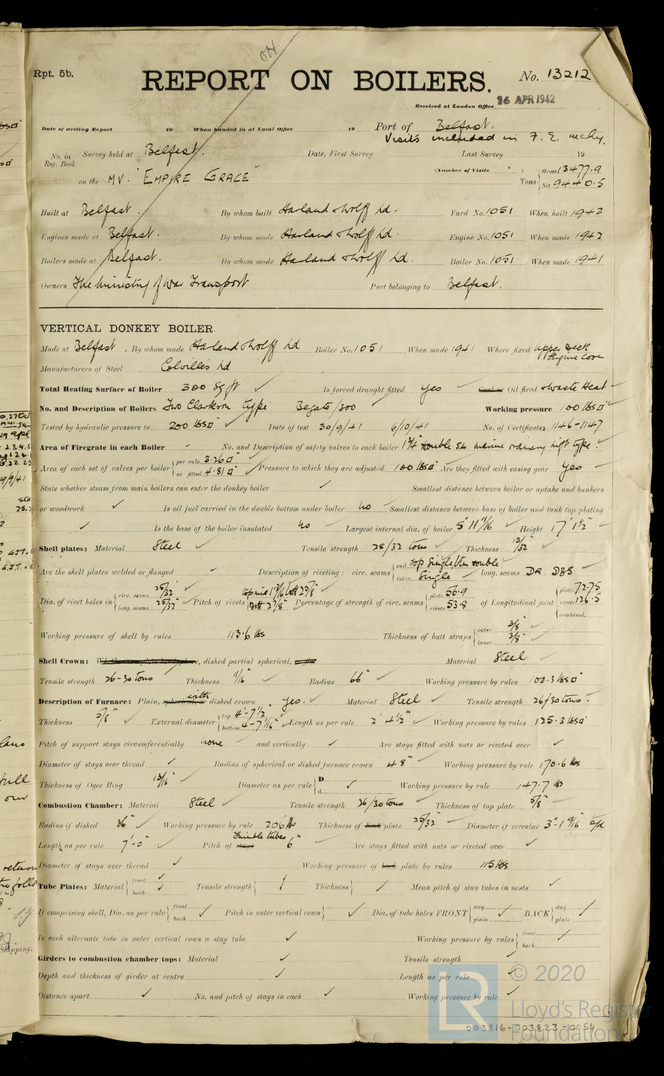 Rpt. 5b.
REPORT ON BOILERS.
No. 13212
Received at London Office 16 APR 1942
Date of writing Report 19 When handed in at Local Office 19 Port of Belfast.
Visits included in F. E. mchy.
No. in Reg. Book Survey held at Belfast. Date, First Survey Last Survey 19
(Number of Visits )
on the MV. "EMPIRE GRACE" Tons { Gross 13477.9 Net 9440.5
Built at Belfast. By whom built Harland & Wolff Ld. Yard No. 1051 When built 1942
Engines made at Belfast. By whom made Harland & Wolff Ld. Engine No. 1051 When made 1942
Boilers made at Belfast. By whom made Harland & Wolff Ld. Boiler No. 1051 When made 1941
Owners The Ministry of War Transport Port belonging to Belfast.
VERTICAL DONKEY BOILER.
Made at Belfast. By whom made Harland & Wolff Ld Boiler No. 1051 When made 1941 Where fixed Upper Deck Engine Room
Manufacturers of Steel Colvilles Ld
Total Heating Surface of Boiler 300 sq ft ✓ Is forced draught fitted yes ✓ Oil fired & Waste Heat
No. and Description of Boilers Two Clarkson type 300 Working pressure 100 lbs□"
Tested by hydraulic pressure to 200 lbs□" Date of test 30/9/41 6/10/41 No. of Certificate 1146-1147
Area of Firegrate in each Boiler - No. and Description of safety valves to each boiler
Area of each set of valves per boiler { per rule 3.26□" as fitted 4.81□" Pressure to which they are adjusted 100 lbs□" Are they fitted with easing gear yes ✓
State whether steam from main boilers can enter the donkey boiler ✓ Smallest distance between boiler or uptake and bunkers
or woodwork ✓ Is oil fuel carried in the double bottom under boiler no ✓ Smallest distance between base of boiler and tank top plating
✓ Is the base of the boiler insulated no ✓ Largest internal dia. of boiler 5' 11 11/16 ✓ Height 17' 1½" ✓
Shell plates: Material Steel Tensile strength 28/32 tons ✓ Thickness
Are the shell plates welded or flanged ✓ Description of riveting: circ. seams { end inter. Single long. seams DR DBS
Dia. of rivet holes in { circ. seams 25/32" long. seams 25/32" Pitch of rivets { Percentage of strength of circ. seams { plate 56.9 rivets 53.8 of Longitudinal joint { plate 72.75 rivets 126.5 combined
Working pressure of shell by rules 113.6 lbs Thickness of butt straps { outer 3/8" inner 3/8"
Shell Crown: dished partial spherical, Material Steel
Tensile strength 26-30 tons ✓ Thickness 11/16" ✓ Radius 66" ✓ Working pressure by rules 100.3 lbs□"
Description of Furnace: Plain, with dished crown yes. ✓ Material Steel Tensile strength 26/30 tons.
Thickness 5/8" External diameter { top 4'-7½" bottom 4-7 7/16" Length as per rule 2'-4½" ✓ Working pressure by rules 125.3 lbs□"
Pitch of support stays circumferentially none and vertically ✓ Are stays fitted with nuts or riveted over ✓
Diameter of stays over thread ✓ Radius of spherical or dished furnace crown 48" ✓ Working pressure by rule 170.6 lbs
Thickness of Ogee Ring 13/16" Diameter as per rule { D d ✓ Working pressure by rule 147.7 lbs
Combustion Chamber: Material Steel ✓ Tensile strength 26/30 tons Thickness of top plate 5/8" ✓
Radius if dished 36" ✓ Working pressure by rule 206 lbs Thickness of plate 25/32" ✓ Diameter if circular
Length as per rule 7'-0" ✓ Pitch of thimble tubes 6" ✓ Are stays fitted with nuts or riveted over ✓
Diameter of stays over thread ✓ Working pressure of plate by rules 115 lbs
Tube Plates: Material { front back ✓ Tensile strength { ✓ Thickness { ✓ Mean pitch of stay tubes in nests ✓
If comprising shell, Dia. as per rule { front back ✓ Pitch in outer vertical rows { ✓ Dia. of tube holes FRONT { stay plain ✓ BACK { stay plain ✓
Is each alternate tube in outer vertical rows a stay tube ✓ Working pressure by rules { front back ✓
Girders to combustion chamber tops: Material ✓ Tensile strength ✓
Depth and thickness of girder at centre ✓ Length as per rule ✓
Distance apart ✓ No. and pitch of stays in each ✓ Working pressure by rule ✓
© 2020
Lloyd's Register
Foundation
003816-003823-0054